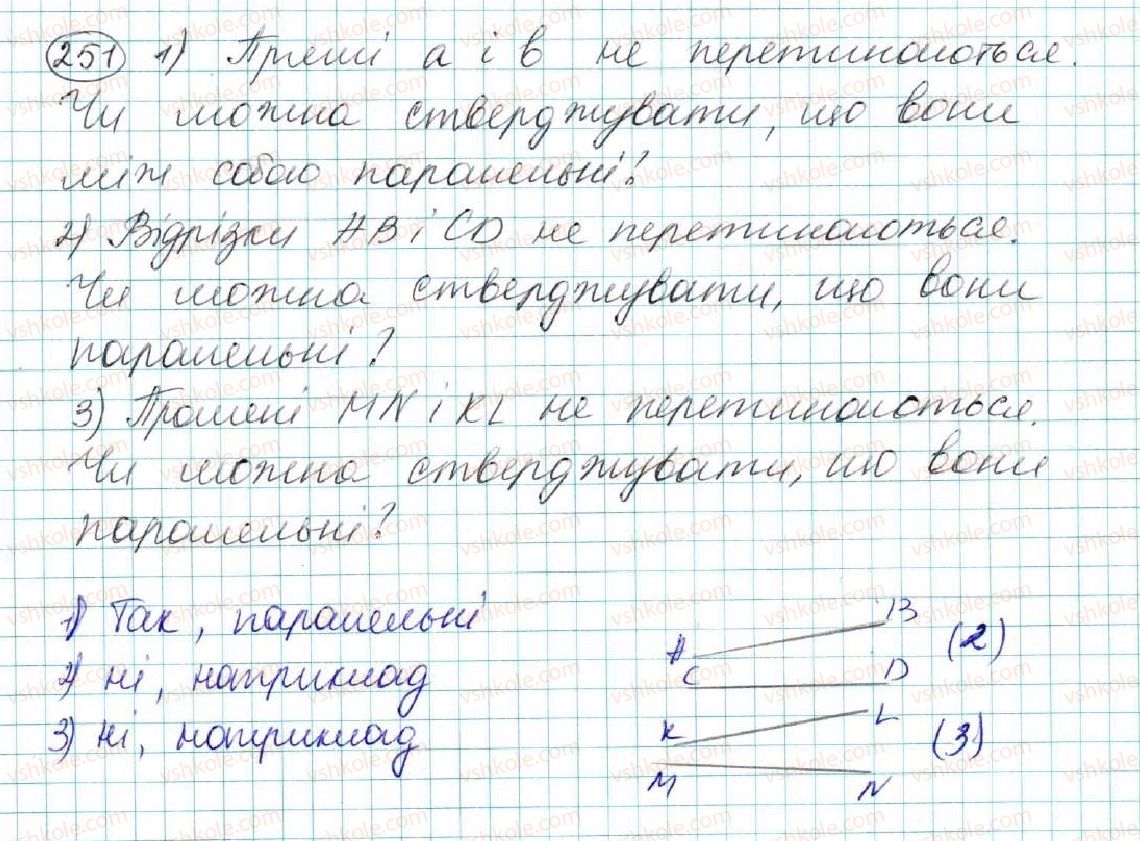 251 1) Прямі a і b не перетинаються.
Чи можна стверджувати, що вони
між собою паралельні?
2) Відрізки AB і CD не перетинаються.
Чи можна стверджувати, що вони
паралельні?
3) Промені MN і KL не перетинаються.
Чи можна стверджувати, що вони
паралельні?
1) Так, паралельні
2) ні, наприклад
3) ні, наприклад
A B
C D
(2)
K L
M N
(3)
vshkole.com